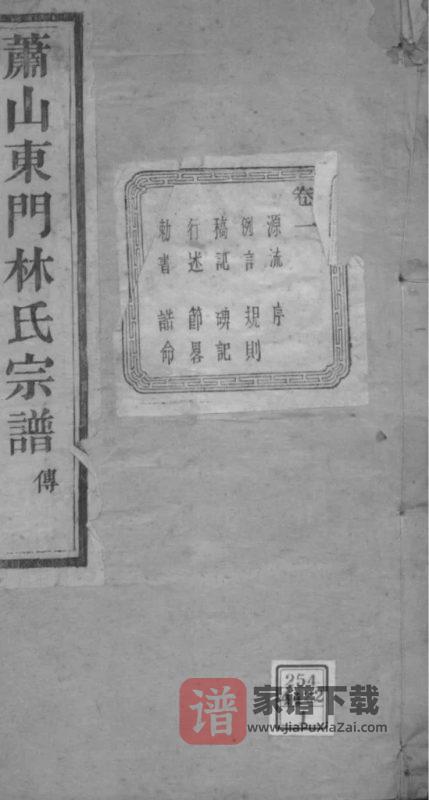 蕭山東門林氏宗譜 傳
卷一
源流 序
例言 規則
稿記 碑記
行述 節畧
勅書 誥命
254
谱 家谱下载
www.JiaPuXiaZai.com